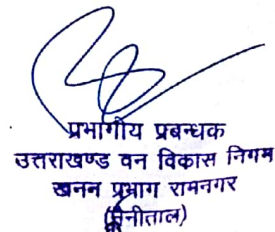 प्रभागीय प्रबन्धक
उत्तराखण्ड वन विकास निगम
खनन प्रभाग रामनगर
(नैनीताल)